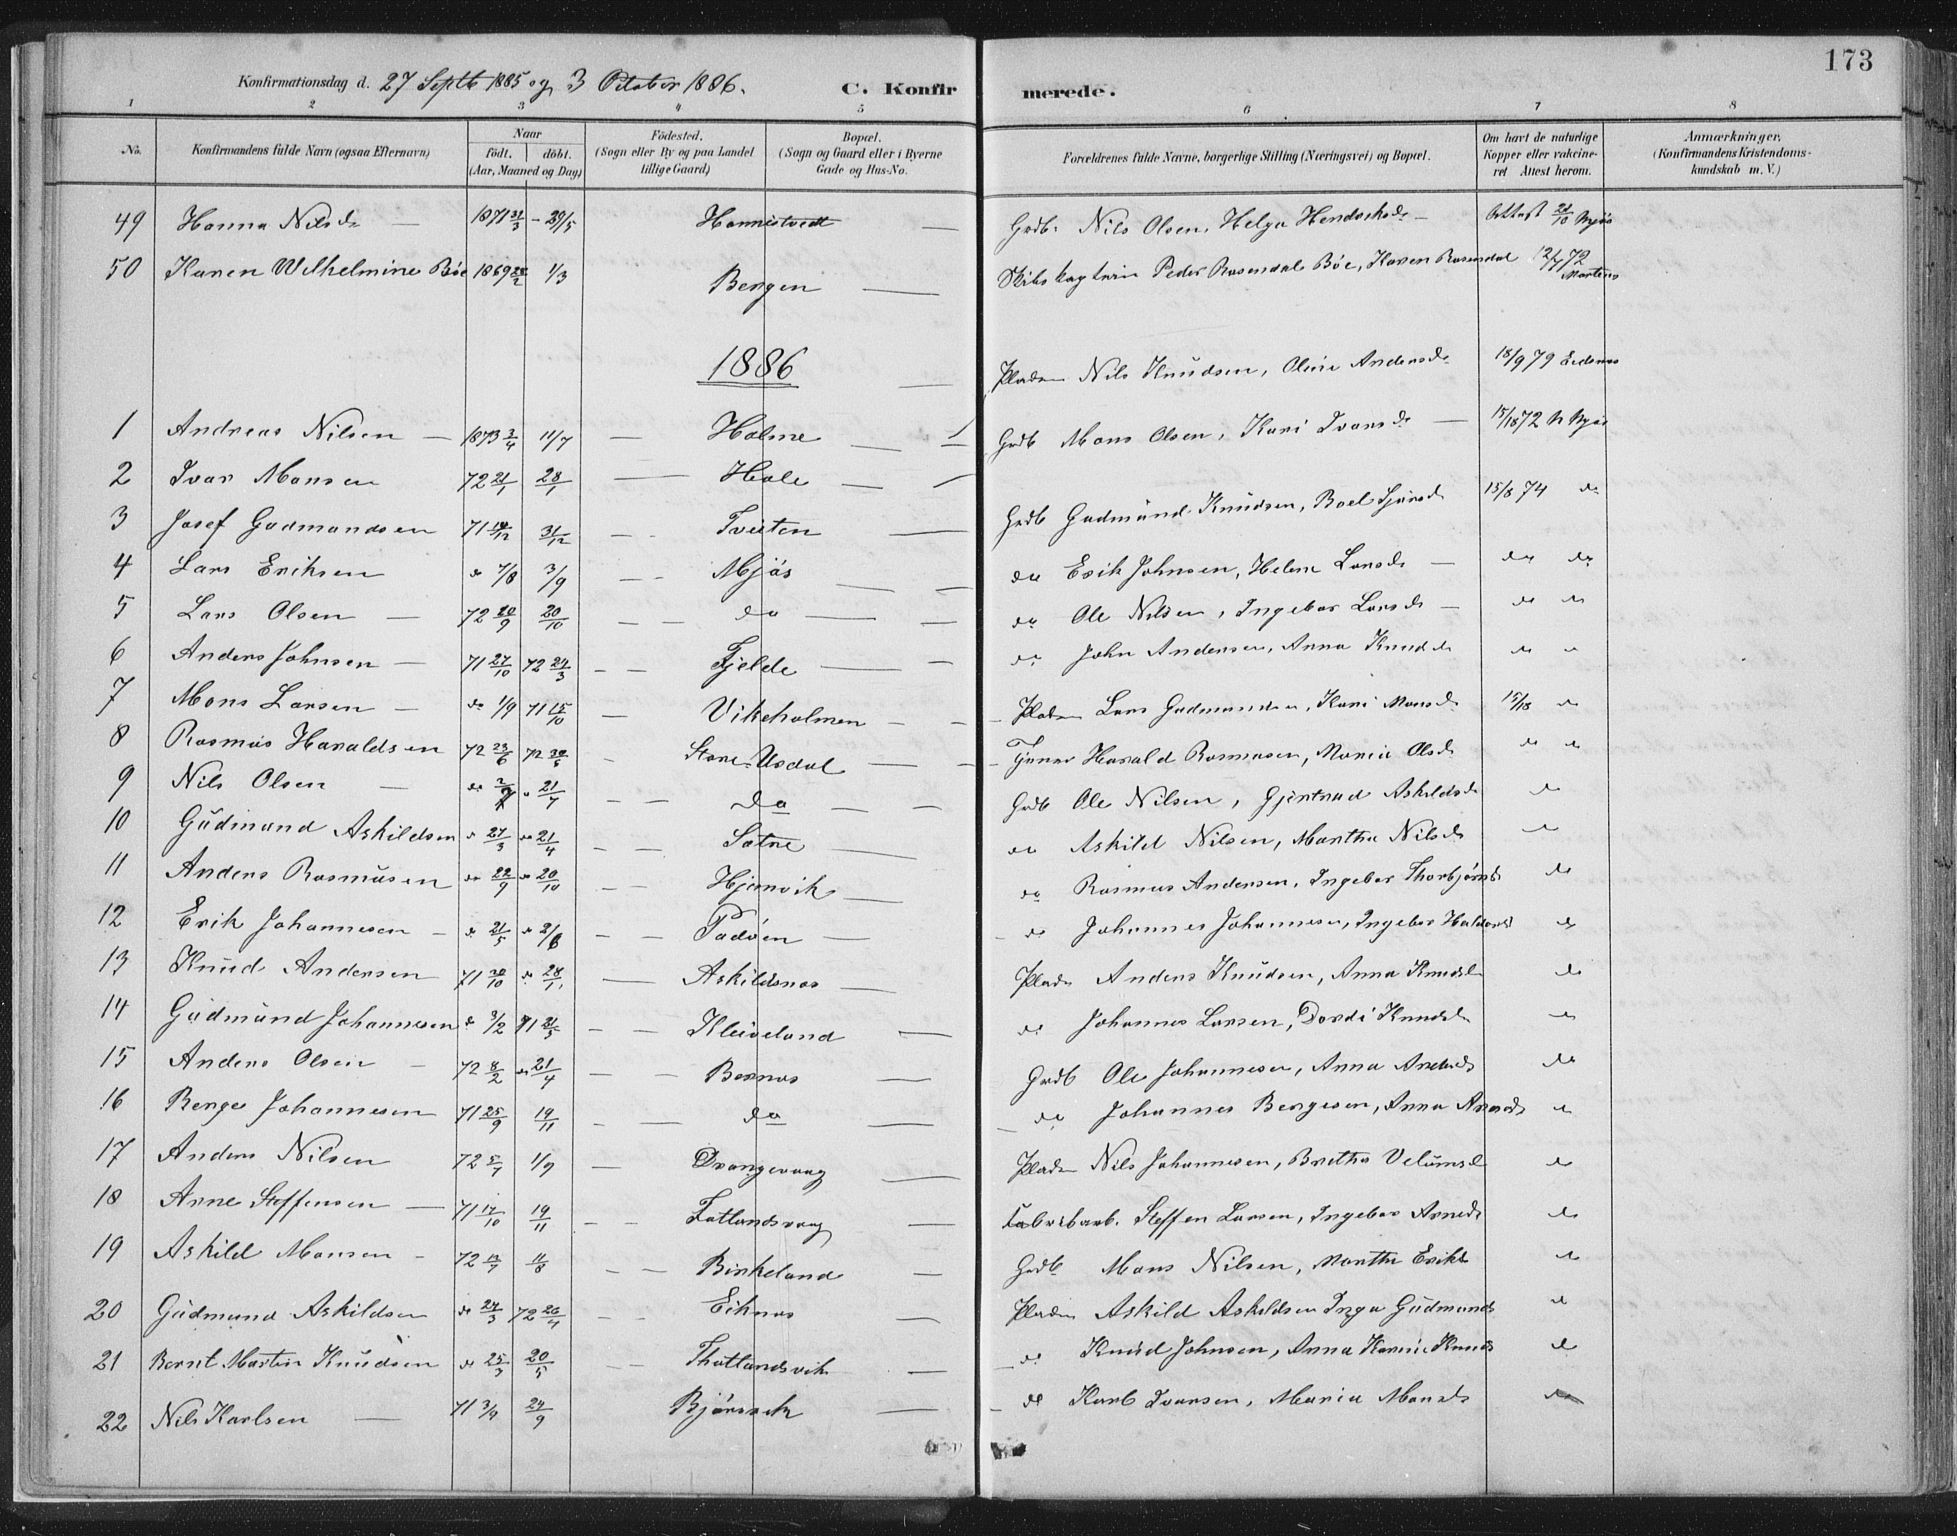 173
Konfirmationsdag d. 27 Septb 1885 og 3 October 1886.
C. Konfirmerede.
1 2 3 4 5 6 7 8
No. Konfirmandens fulde Navn (ogsaa Efternavn) Naar födt. döbt. (Aar, Maaned og Dag) Födested. (Sogn eller By og paa Landet tillige Gaard) Bopæl. (Sogn og Gaard eller i Byerne Gade og Hus-No. Forældrenes fulde Navne, borgerlige Stilling (Næringsvei) og Bopæl. Om havt de naturlige Kopper eller vakcineret Attest herom. Anmærkninger. (Konfirmandens Kristendomskundskab m. V.)
49 Hanna Nilsd. 1871 31/3 - 29/5 Hannistvedt Grdb. Nils Olsen, Helga Hendriksd. Attest 21/10 Mjös
50 Karen Wilhelmine Böe 1869 1/3 Bergen Skibskaptein Peder Rosendal Böe, Karen Rosendal 12/7 72 Martens
1886
Plads Nils Knudsen, Oline Andersd. 18/9 79
1 Andreas Nilsen 1873 3/4 11/7 Holme Grdb Mons Olsen, Kari Ivarsd. 15/1872 N Mjös
2 Ivar Monsen 72 21/1 28/1 Hole
3 Josef Gudmundsen 71 31/12 Tveiten Grdb Gudmund Knudsen, Boel 15/8 74 do
4 Lars Eriksen do 7/8 3/9 Mjös do Erik Johnsen, Helene Larsd. do do
5 Lars Olsen 72 20/9 20/10 do do Ole Nilsen, Ingebor Larsd. do do
6 Anders Johnsen 71 27/10 72 24/3 Fjelde do John Andersen, Anna Knudsd. do do
7 Mons Larsen do 1/9 71 15/10 Vikeholmen Plads Lars Gudmundsen, Kari Monsd. 15/18 do
8 Rasmus Haraldsen 72 23/6 72 Store-Usdal Harald Rasmusen, Maria Olsd. do do
9 Nils Olsen do 21/7 do Grdb Ole Nilsen, Gjertrud Askildsd. do
10 Gudmund Askildsen do 27/3 do 21/4 Sætre do Askild Nilsen, Martha Nilsd. do
11 Anders Rasmusen do 22/9 do 20/10 Hjernvik do Rasmus Andersen, Ingebor Thorbjörnsd. do
12 Erik Johannesen do 21/5 do 2/6 Padöen do Johannes Johannesen, Ingebor Haldorsd. do
13 Knud Andersen 71 30/10 do 28/1 Askildsnes Plads Anders Knudsen, Anna Knudsd. do
14 Gudmund Johannesen do 3/2 71 21/5 Kleiveland do Johannes Larsen, Dordi Knudsd. do
15 Anders Olsen 72 8/2 do 21/4 Bernes Grdb Ole Johannesen, Anna Andersd. do
16 Berge Johannesen 71 25/9 19/11 do do Johannes Bergesen, Anna Arnesd. do
17 Anders Nilsen 72 5/7 1/9 Drangevaag Plads Nils Johannesen, Brettha do
18 Arne Steffensen 71 17/10 19/11 Fotlandsvaag Fabrikarb. Steffen Larsen, Ingebor Arnesd. do
19 Askild Monsen 72 11/8 Birkeland Grdb Mons Nilsen, Martha Eriksd. do
20 Gudmund Askildsen do 24/3 72 26/4 Eiknes Plads Askild Askildsen Inga Gudmundsd. do
21 Bernt Martin Knudsen do 25/3 20/5 Thotlandsvik do Knud Johnsen, Anna Karine Knudsd. do
22 Nils Karlsen 71 3/9 24/9 Björsvik do Karl Ivarsen, Maria Monsd. do